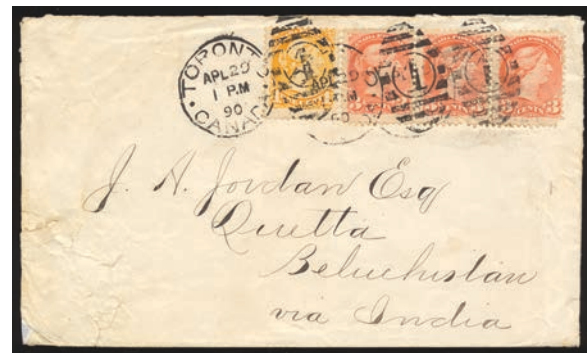 TORONTO
APL 29
1 PM
90
CANADA
APL 29
1 PM
90
1
3
3
J. A. Jordan Esq
Quetta
Beluchistan
via India